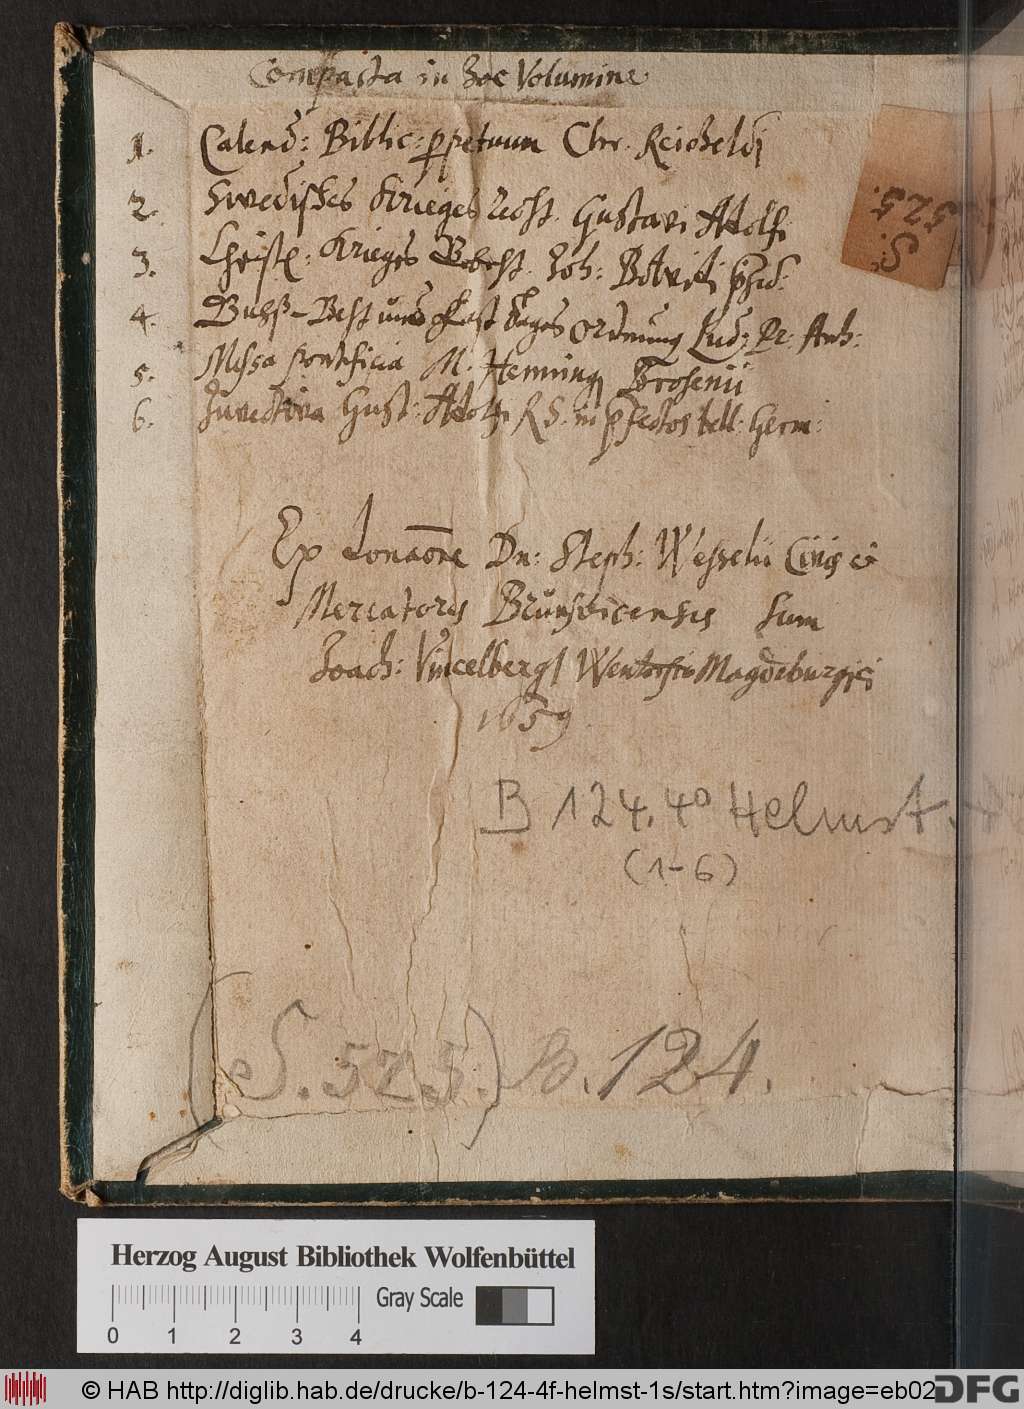 Compacta in hoc Volumine
1. Calend: Biblic: perpetuum Chr. Reicheldi
2. Swedisches Krieges Recht. Gustavi Adolfi
3. Christl: Krieges Gebeht. Joh: Botvidi
4. Buhß-Beht und Fast Tages Ordnung Lud: Pr. Anh:
5. Missa Pontificia M. Henning
6. Invectiva Gust: Adolfi R. S. in pfectos bell: Germ:
S. 525.
Ex donaõne Dn: Steph: Wesselii Civis &
Mercatoris Brunsvicensis sum
Joach: Vincelbergs Magdeburgici
1659
B 124.4° Helmst.
(1-6)
(S. 525.) B. 124.
Herzog August Bibliothek Wolfenbüttel
Gray Scale
0 1 2 3 4
© HAB http://diglib.hab.de/drucke/b-124-4f-helmst-1s/start.htm?image=eb02
DFG